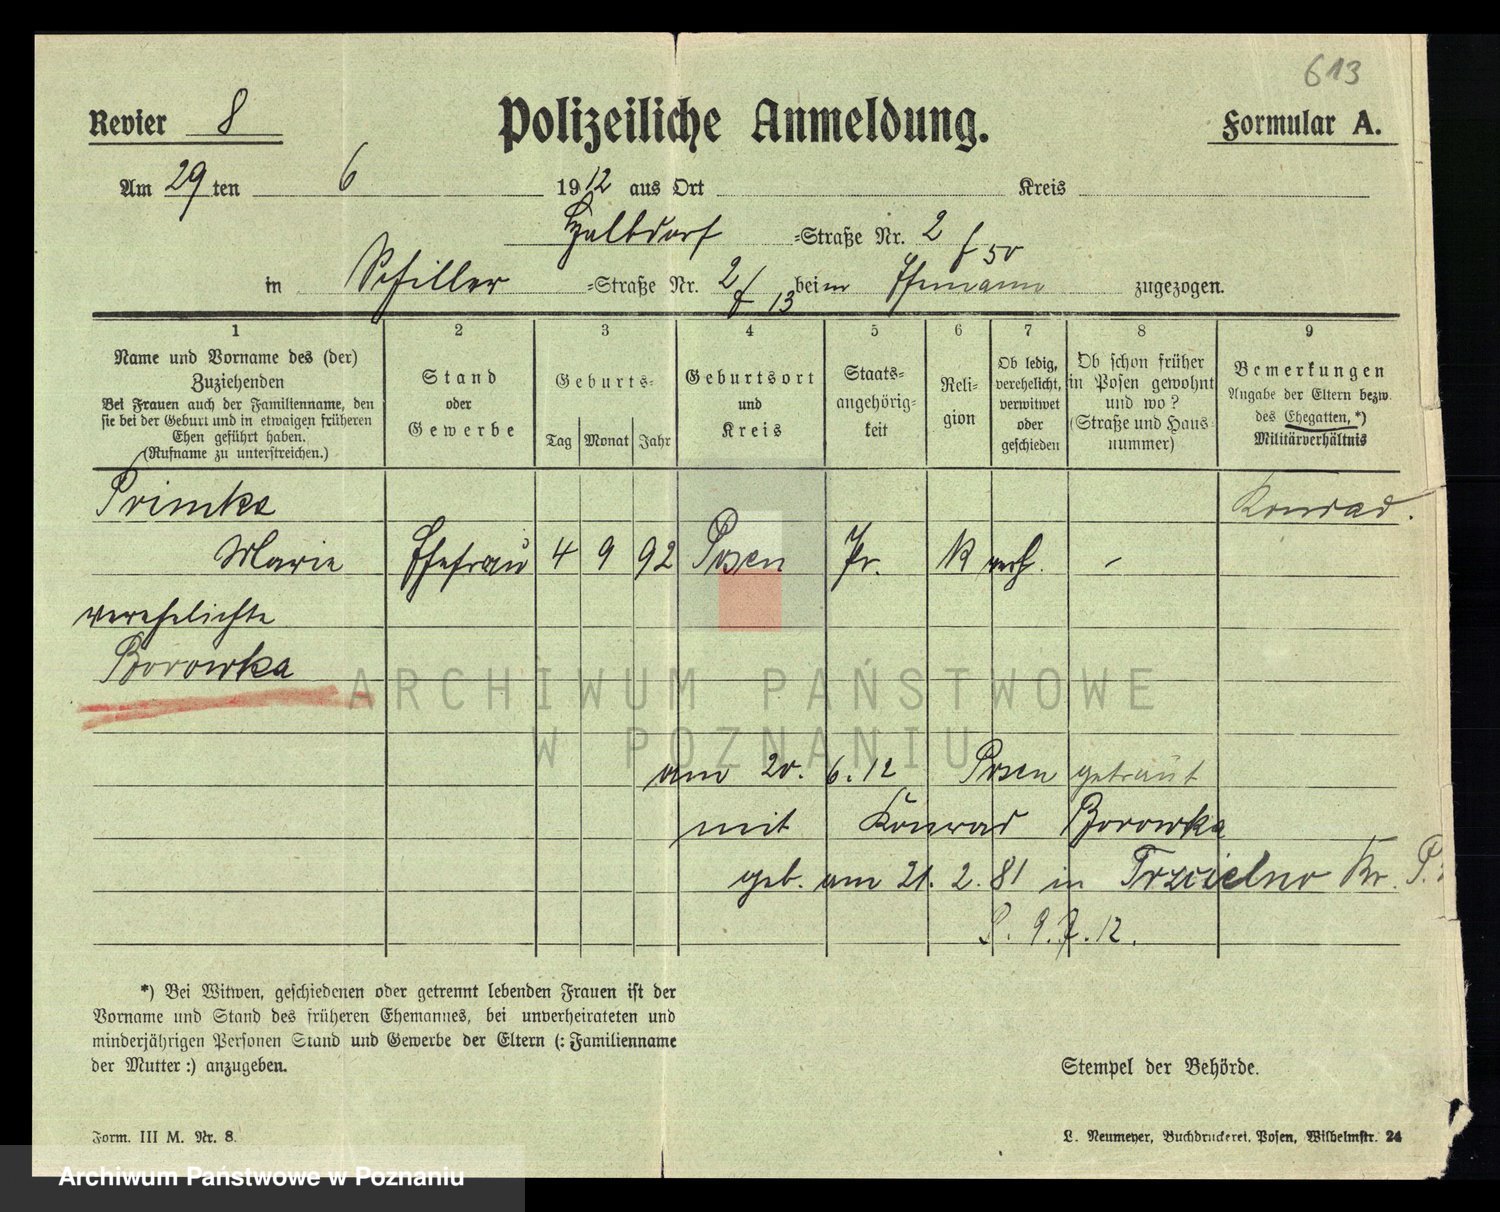 613
Revier 8 Polizeiliche Anmeldung. Formular A.
Am 29 ten 6 1912 aus Ort Kreis
Halbdorf =Straße Nr. 2 f 50
in Schiller =Straße Nr. 2/ f 13 beim Ehemann zugezogen.
1 2 3 4 5 6 7 8 9
Name und Vorname des (der)
Zuziehenden
Bei Frauen auch der Familienname, den
sie bei der Geburt und in etwaigen früheren
Ehen geführt haben.
(Rufname zu unterstreichen.)
Stand
oder
Gewerbe
Geburts-
Tag Monat Jahr
Geburtsort
und
Kreis
Staats-
angehörig-
keit
Reli-
gion
Ob ledig,
verehelicht,
verwitwet
oder
geschieden
Ob schon früher
in Posen gewohnt
und wo?
(Straße und Haus-
nummer)
Bemerkungen
Angabe der Eltern bezw.
des Ehegatten, *)
Militärverhältnis
Primke Konrad.
Marie Ehefrau 4 9 92 Posen Pr. K verh. -
verehelichte
Borowka
am 20. 6. 12 Posen getraut
mit Konrad Borowka
geb. am 21. 2. 81 in Trzcielno Kr. P.
9.7.12.
*) Bei Witwen, geschiedenen oder getrennt lebenden Frauen ist der
Vorname und Stand des früheren Ehemannes, bei unverheirateten und
minderjährigen Personen Stand und Gewerbe der Eltern (: Familienname
der Mutter :) anzugeben.
Stempel der Behörde.
Form. III M. Nr. 8.
L. Neumeyer, Buchdruckerei, Posen, Wilhelmstr. 24
ARCHIWUM PAŃSTWOWE
W POZNANIU
Archiwum Państwowe w Poznaniu